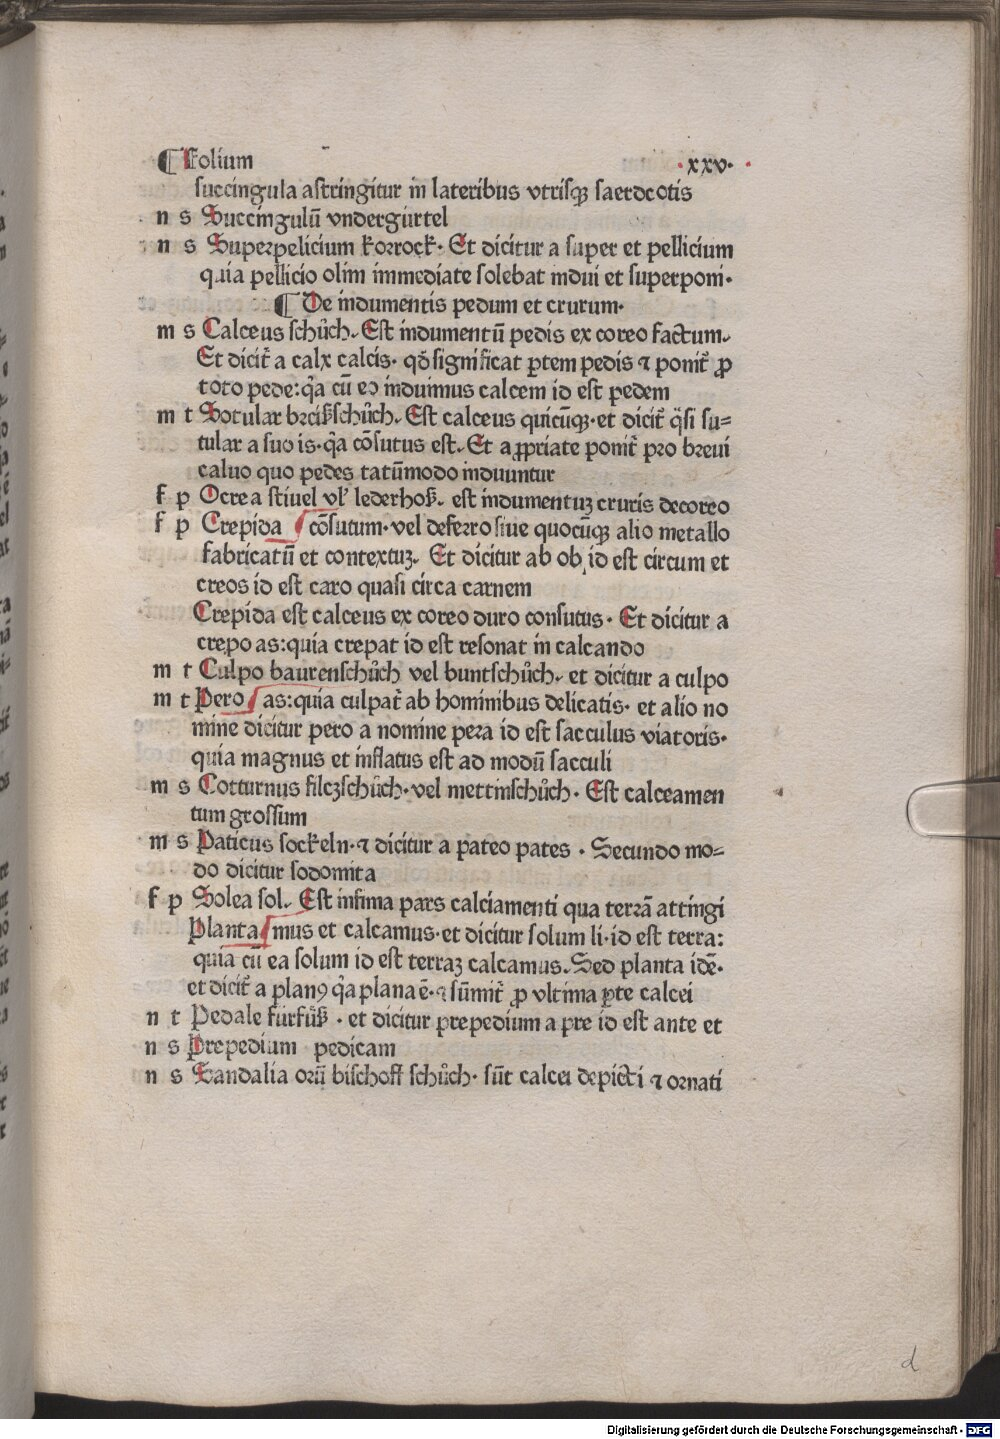 ¶ Folium ·xxv·
succingula astringitur in lateribus vtrisqꝫ saerdcotis
n s Succingulū vndergürtel
n s Superpelicium korrock· Et dicitur a super et pellicium
quia pellicio olim immediate solebat indui et superponi·
¶ De indumentis pedum et crurum·
m s Calceus schůch. Est indumentū pedis ex coreo factum.
Et dicit̄ a calx calcis· qđ significat ꝑtem pedis ⁊ ponit̄ ꝓ
toto pede:q̄a cū eo induimus calcem id est pedem
m t Sotular breiſzschůch. Est calceus quicūqꝫ·et dicit̄ q̄si su=
tular a suo is·q̄a cōsutus est. Et aꝓpriate ponit̄ pro breui
caluo quo pedes tatūmodo induuntur
f p Ocrea stiuel vl' lederhoſz. est indumentuꝫ cruris decoreo
f p Crepida cōsutum·vel deferro siue quocūqꝫ alio metallo
fabricatū et contextuꝫ. Et dicitur ab ob id est circum et
creos id est caro quasi circa carnem
Crepida est calceus ex coreo duro consutus· Et dicitur a
crepo as:quia crepat id est resonat in calcando
m t Culpo baurenschůch vel buntschůch. et dicitur a culpo
m t Pero as:quia culpat̄ ab hominibus delicatis· et alio no
mine dicitur pero a nomine pera id est sacculus viatoris·
quia magnus et inflatus est ad modū sacculi
m s Cotturnus filczschůch·vel mettinschůch· Est calceamen
tum grossum
m s Paticus sockeln·⁊ dicitur a pateo pates · Secundo mo=
do dicitur sodomita
f p Solea sol. Est infima pars calciamenti qua terrā attingi
Planta mus et calcamus·et dicitur solum li·id est terra:
quia cū ea solum id est terraꝫ calcamus. Sed planta idē·
et dicit̄ a planꝰ q̄a plana ē·⁊ sūmit̄ ꝓ vltima ꝑte calcei
n t Pedale fürfůſz · et dicitur prepedium a pre id est ante et
n s Prepedium pedicam
n s Sandalia orū bischoff schůch· sūt calcei depicti ⁊ ornati
d
Digitalisierung gefördert durch die Deutsche Forschungsgemeinschaft - DFG